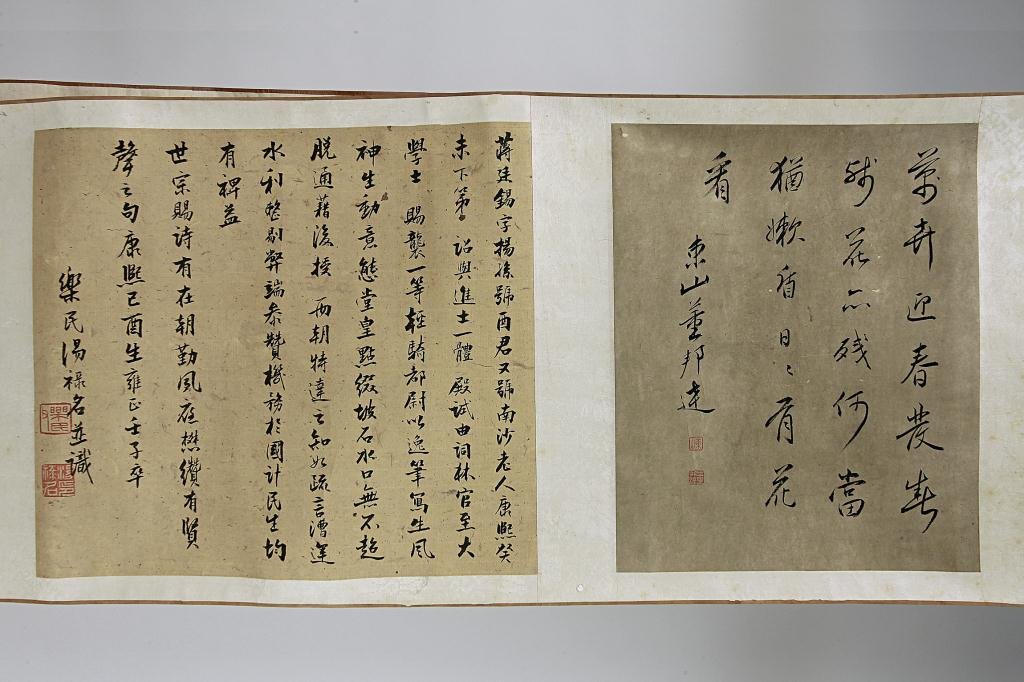 萬卉迎春發春
殘花亦殘何當
猶嫩盾日〻有花
看
東山董邦達
蔣廷錫字揚孫號酉君又號南沙老人康熙癸
未下第 詔與進士一體 殿試由詞林官至大
學士 賜襲一等輕騎都尉以逸筆寫生風
神生動意態堂皇點綴坡石水口無不超
脫通籍後授 兩朝特達之知如疏言漕運
水利整剔弊端參贊機務於國計民生均
有裨益
世宗賜詩有在朝勤夙夜懋績有賢
聲之句康熙己酉生雍正壬子卒
樂民湯祿名並識